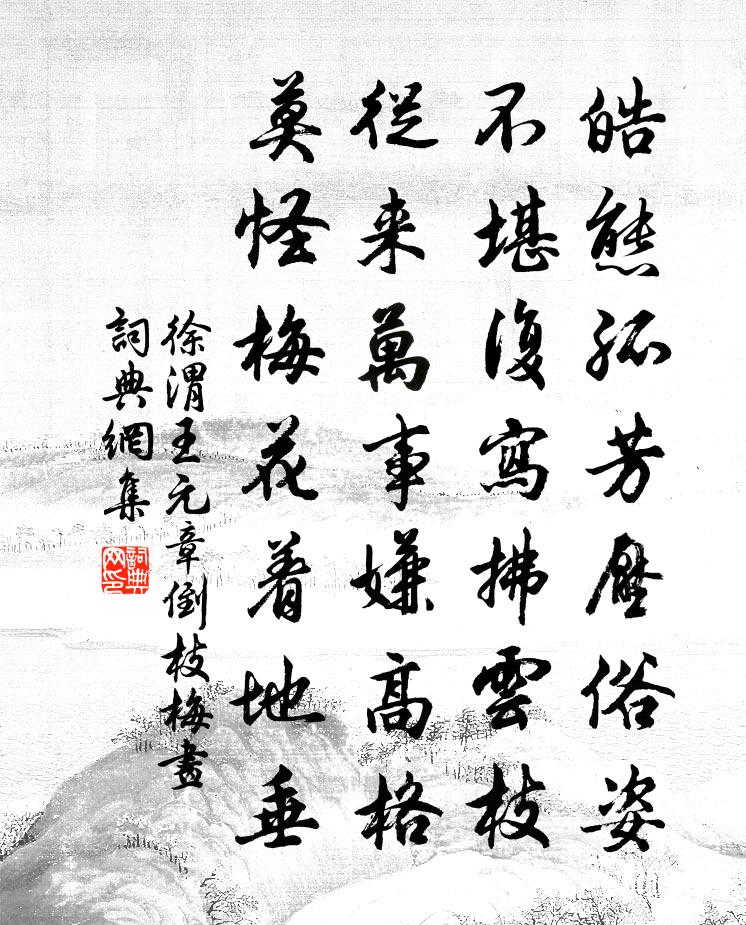 皓態孤芳壓俗姿
不堪復寫拂雲枝
從来萬事嫌高格
莫怪梅花着地垂
徐渭王元章倒枝梅畫
詞典網集
詞典网印